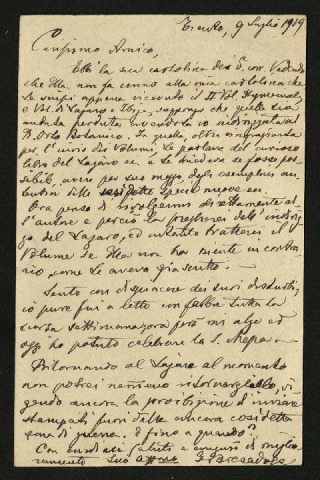 Trento, 9 Luglio 1919
Carissimo Amico,
Ebbi la sua cartolina dei 5. corr. Vedendo
che Ella non fa cenno alla mia cartolina che
Le scrissi appena ricevuto il II Vol.
e Vol. di Lazaro e Ibiza, suppongo che quella sia
andata perduta avendola io indirizzata al
R. Orto Botanico. In quella, oltre ringraziarla
per l'invio dei Volumi, Le parlava del curioso
libro del Lazaro ecc. e Le chiedeva se fosse pos-
sibile avere per suo mezzo degli esemplari au-
tentici delle specie nuove ecc.
Ora penso di rivolgermi direttamente al-
l'autore e perciò La pregherei dell'indiriz-
zo del Lazaro, ed intanto tratterrei il
Volume se Ella non ha niente in contra-
rio, come Le avevo già scritto. –
Sento con dispiacere dei suoi disturbi,
io pure fui a letto con febbre tutta la
scorsa settimana, ora però mi alzo ed
oggi ho potuto celebrare la S. Messa. –
Ritornando al Lazaro al momento
non potrei nemmeno ritornarglielo, vi-
gendo ancora la proibizione di inviare
stampati fuori della ancora cosidetta
zona di guerra. E fino a quando?
Con cordiali saluti e auguri di miglio-
ramento suo affmo G. Bresadola